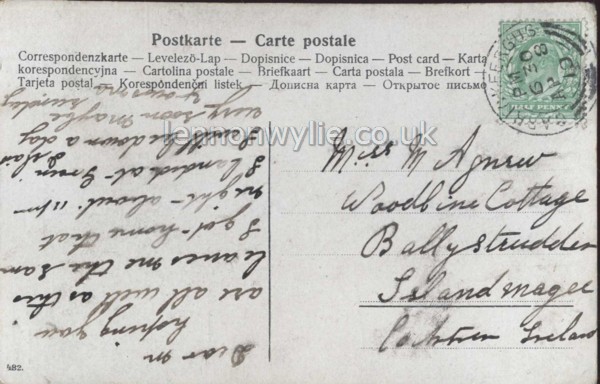 Postkarte — Carte postale
Correspondenzkarte — Levelező-Lap — Dopisnice — Dopisnica — Post card — Karta
korespondencyjna — Cartolina postale — Briefkaart — Carta postala — Brefkort —
Tarjeta postal — Korespondenční listek — Дописна карта — Открытое письмо
HALF PENNY
lennonwylie.co.uk
Miss M Agnew
Woodbine Cottage
Ballystrudden
Islandmagee
Co Antrim Ireland
Dear M
hoping you
are all well as this
leaves me the same
I got home that
night about 11 pm
I landed at Green
Island
I will be down a day
very soon maybe
Sunday
482.